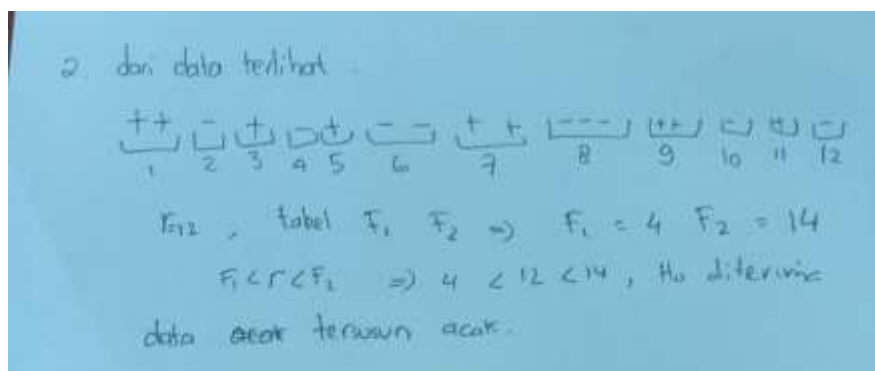 2. dari data terlihat
++ - + - + -- ++ --- ++ - + -
1 2 3 4 5 6 7 8 9 10 11 12
r=12, tabel F₁ F₂ => F₁ = 4 F₂ = 14
F₁<r<F₂ => 4 < 12 < 14, Ho diterima
data acak tersusun acak.